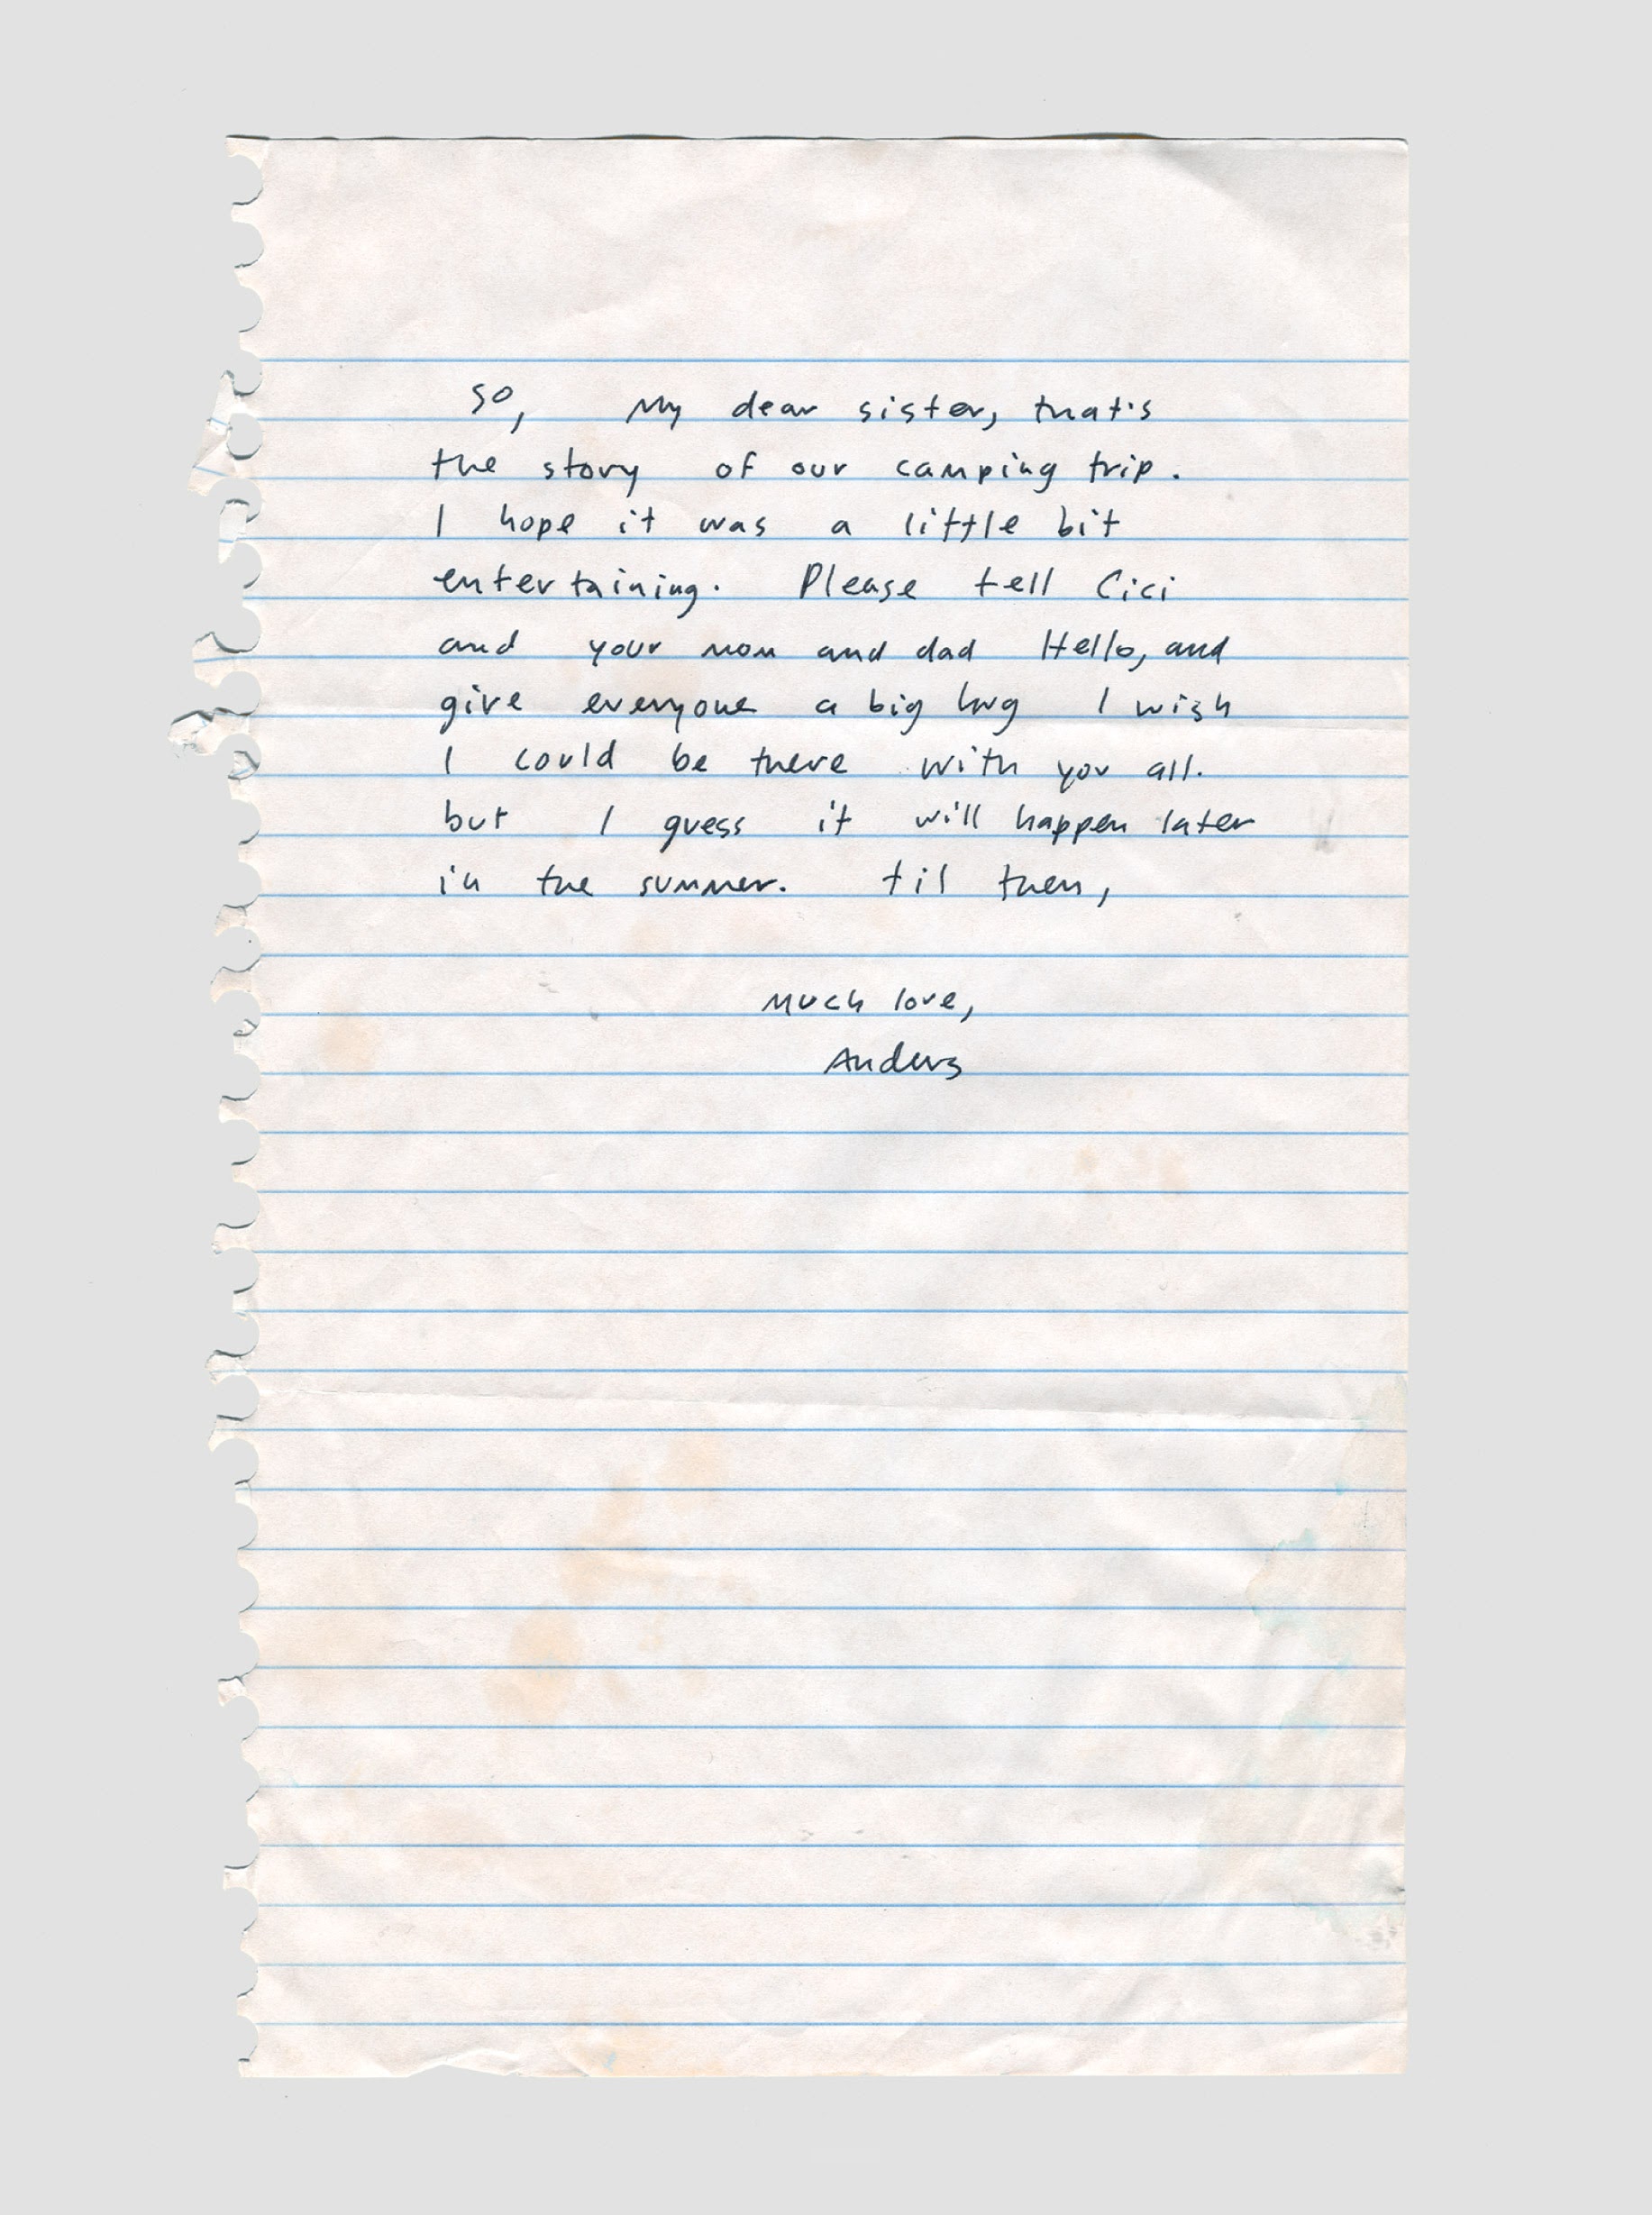 so, My dear sister, that's
the story of our camping trip.
I hope it was a little bit
entertaining. Please tell Cici
and your mom and dad Hello, and
give everyone a big hug I wish
I could be there with you all.
but I guess it will happen later
in the summer. til then,
Much love,
Anders